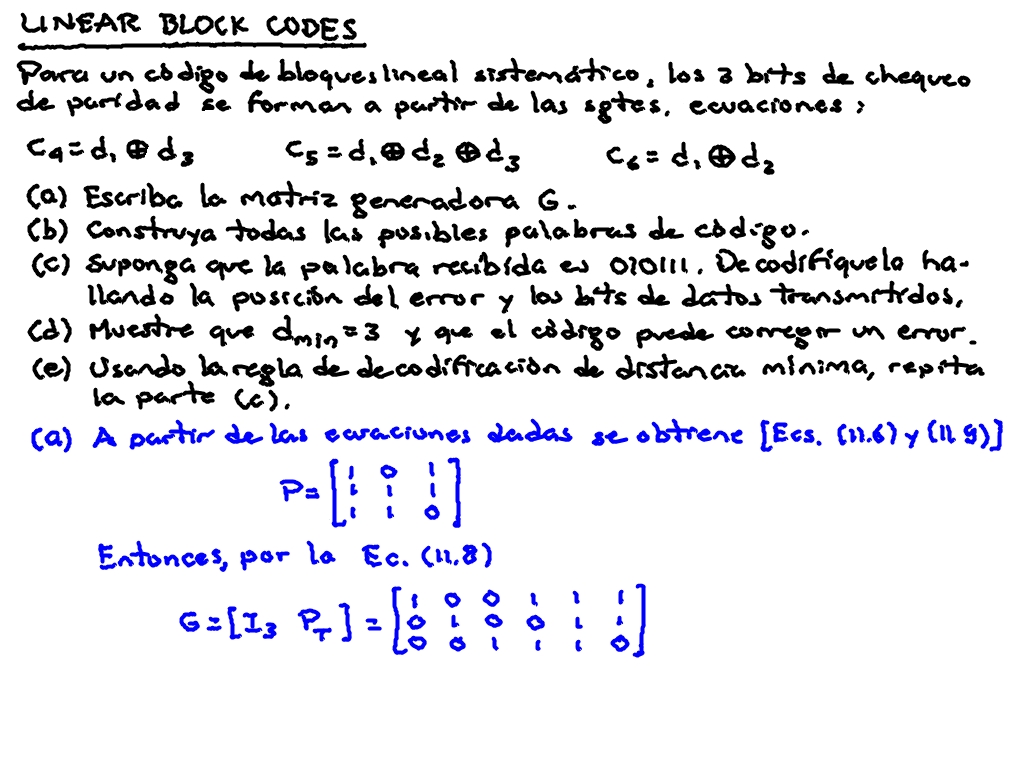 LINEAR BLOCK CODES
Para un código de bloques lineal sistemático, los 3 bits de chequeo
de paridad se forman a partir de las sgtes. ecuaciones:
C4 = d1 ⊕ d3 C5 = d1 ⊕ d2 ⊕ d3 C6 = d1 ⊕ d2
(a) Escriba la matriz generadora G.
(b) Construya todas las posibles palabras de código.
(c) Suponga que la palabra recibida es 010111. Decodifíquela ha-
llando la posición del error y los bits de datos transmitidos.
(d) Muestre que dmin = 3 y que el código puede corregir un error.
(e) Usando la regla de decodificación de distancia mínima, repita
la parte (c).
(a) A partir de las ecuaciones dadas se obtiene [Ecs. (11.6) y (11.9)]
P = [1 0 1
1 1 1
1 1 0]
Entonces, por la Ec. (11.8)
G = [I3 PT] = [1 0 0 1 1 1
0 1 0 0 1 1
0 0 1 1 1 0]